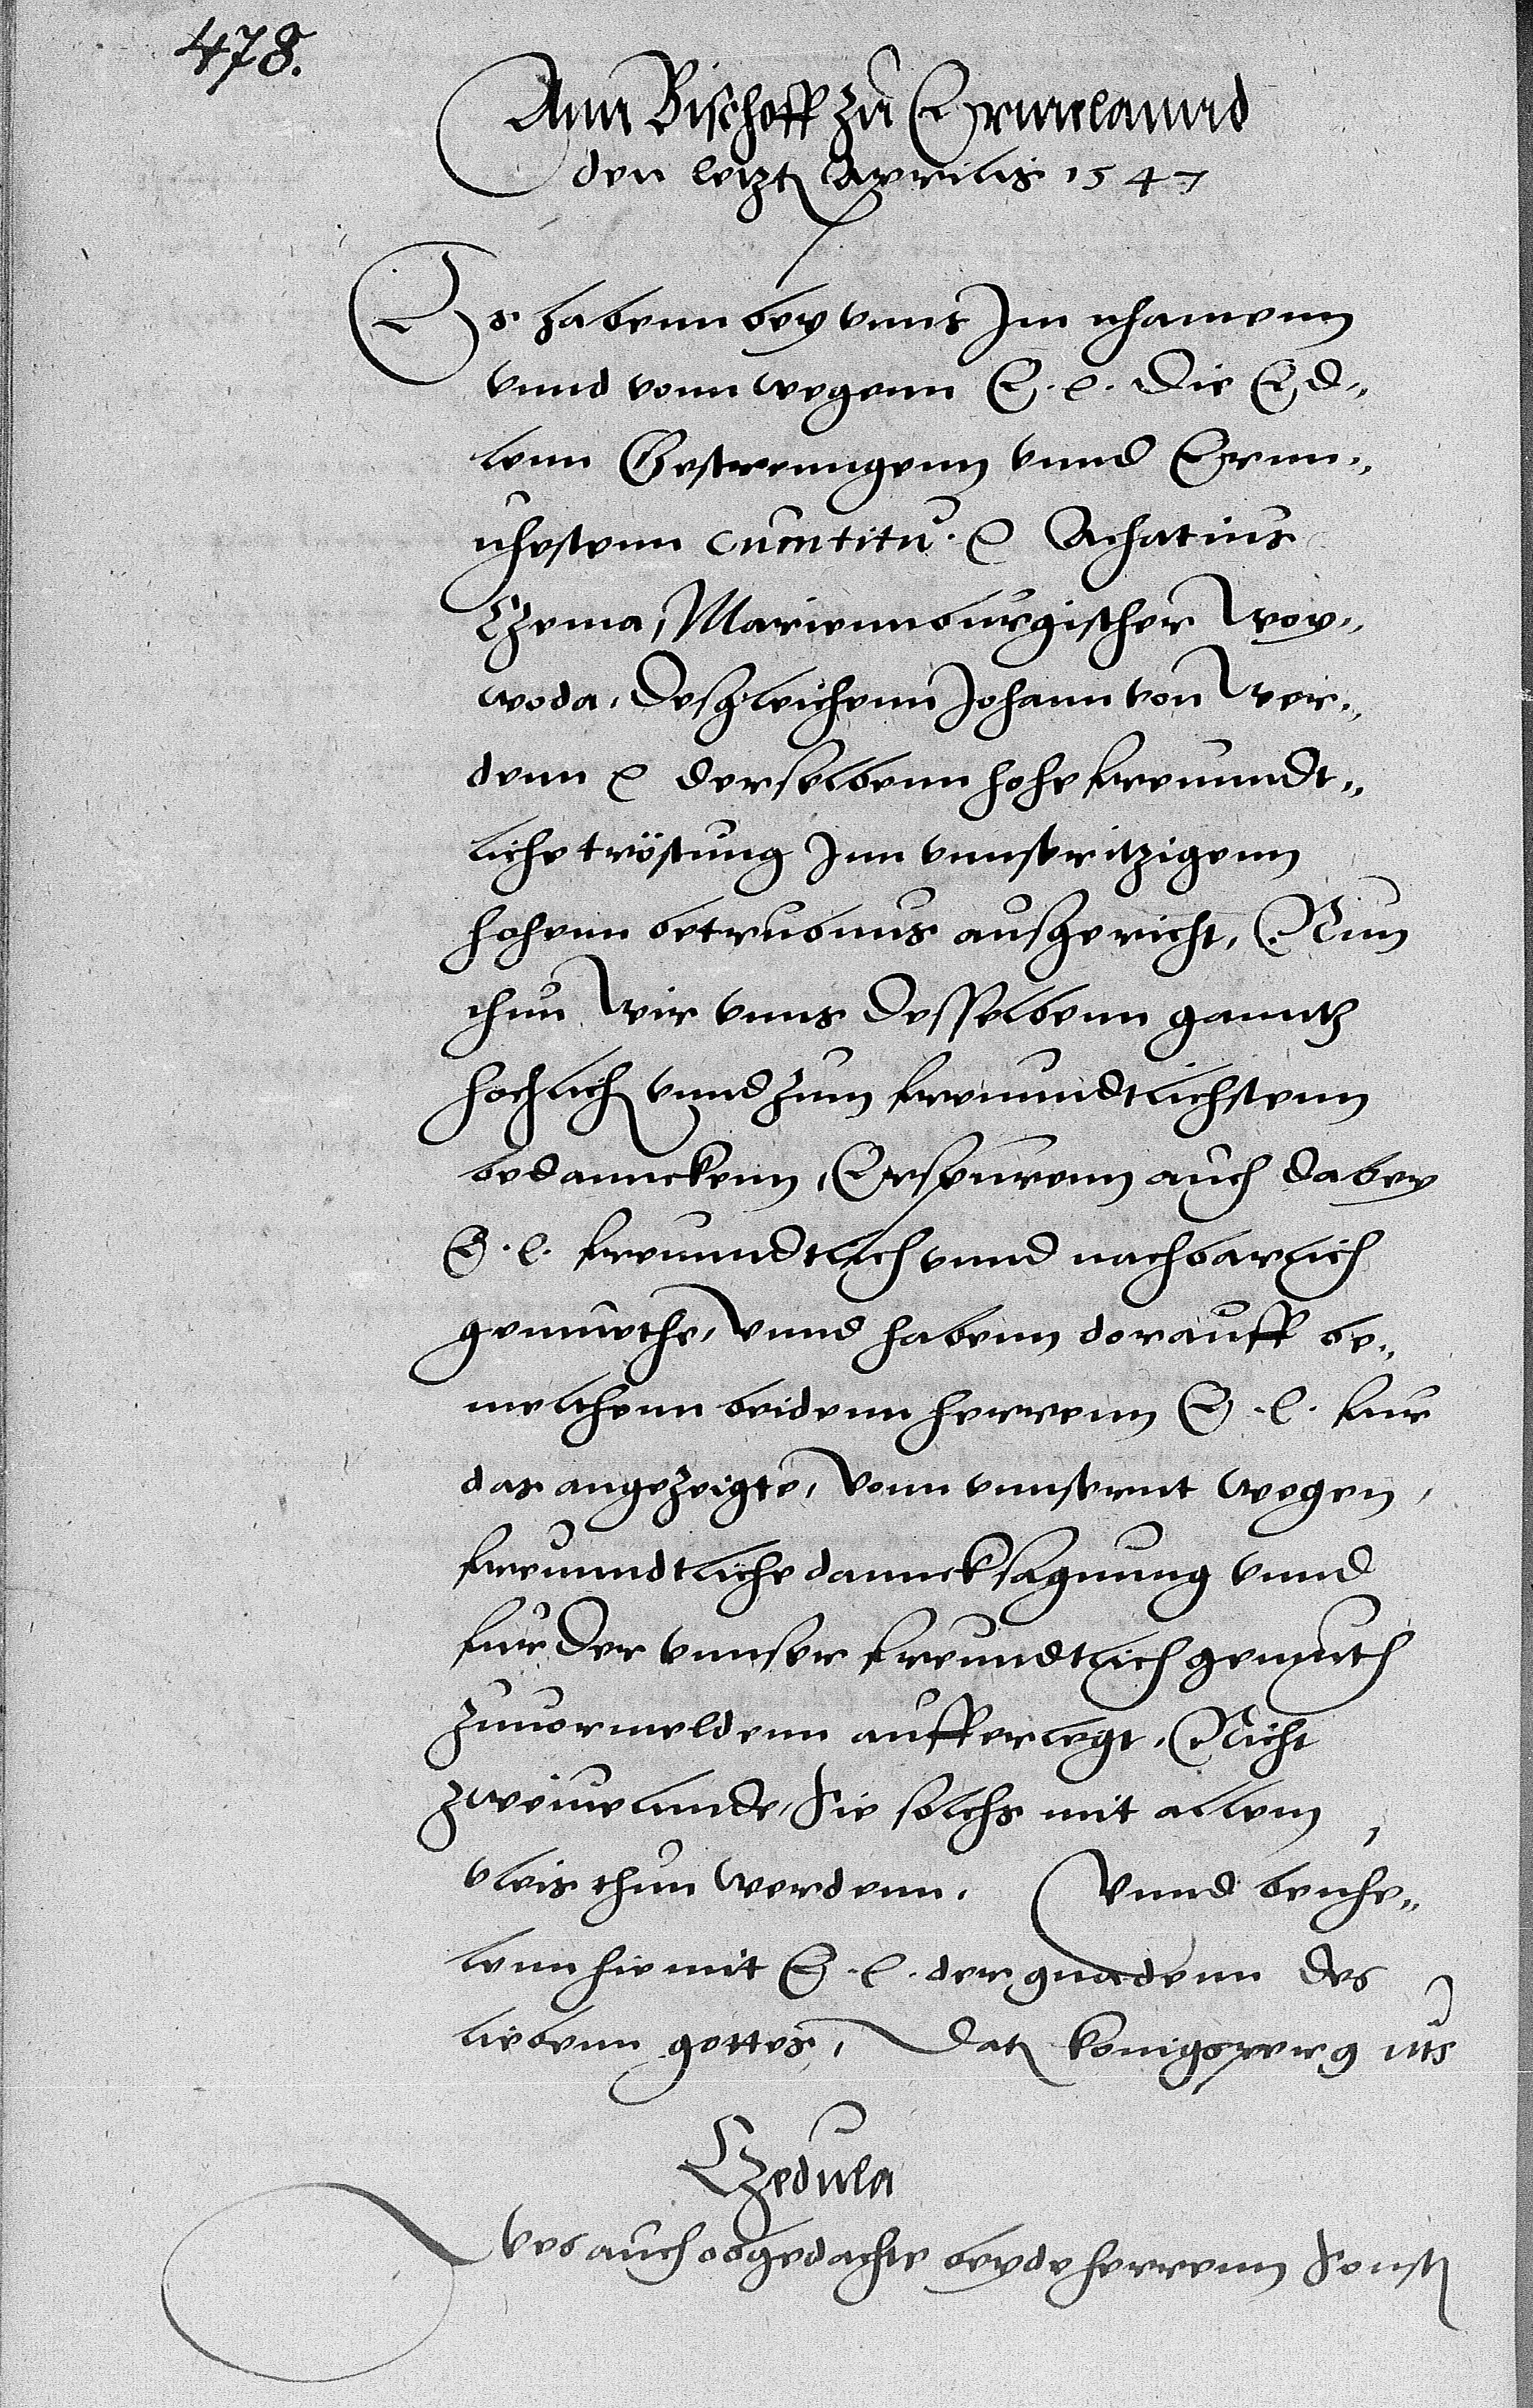 478.
Ann Bischoff zu Ermelannd
den letzt Aprilis 1547
Es habenn bey vnns Jm nhamenn
vnnd vonn wegenn E. l. Die Ed„
lenn Gestrenngenn vnnd Ernn„
uhestenn cum titu. &c Achatius
Czema, Mariennburgischer Woy„
woda, Deßgleichenn Johann von Wer„
denn &c derselbenn hohe freundt„
liche tröstung Jnn vnnser itzigenn
hohenn betrubnus außgericht, Nun
thun Wir vnns desselbenn ganntz
hochlich vnnd zum freundtlichstenn
bedannckenn, Erspurenn auch dabey
E. l. freundtlich vnnd nachbarlich
gemuethe, Vnnd habenn dorauff be„
melthenn beidenn herrenn E. l. fur
das angezeigte, Vonn vnnsernt wegen,
freundtliche dancksagung vnnd
furder vnnser freundtlich gemuth
zuuormeldenn aufferlegt, Nicht
zweiuelnde, Sie solchs mit allem
vleis thun werdenn. Vnnd beuhe„
lenn hiemit E. l. der gnadenn des
liebenn gottes, Dat konigsperg uts
Czedula
Vns auch obgedachte beyde herrenn sonst